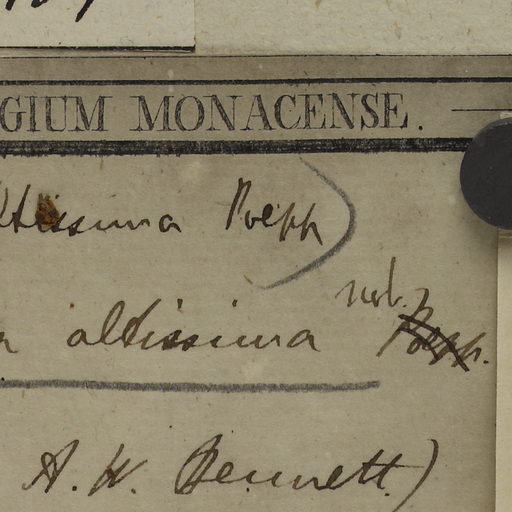 GIUM MONACENSE.
ltissima Poepp
altissima nob. Poepp.
A. W. Bennett)